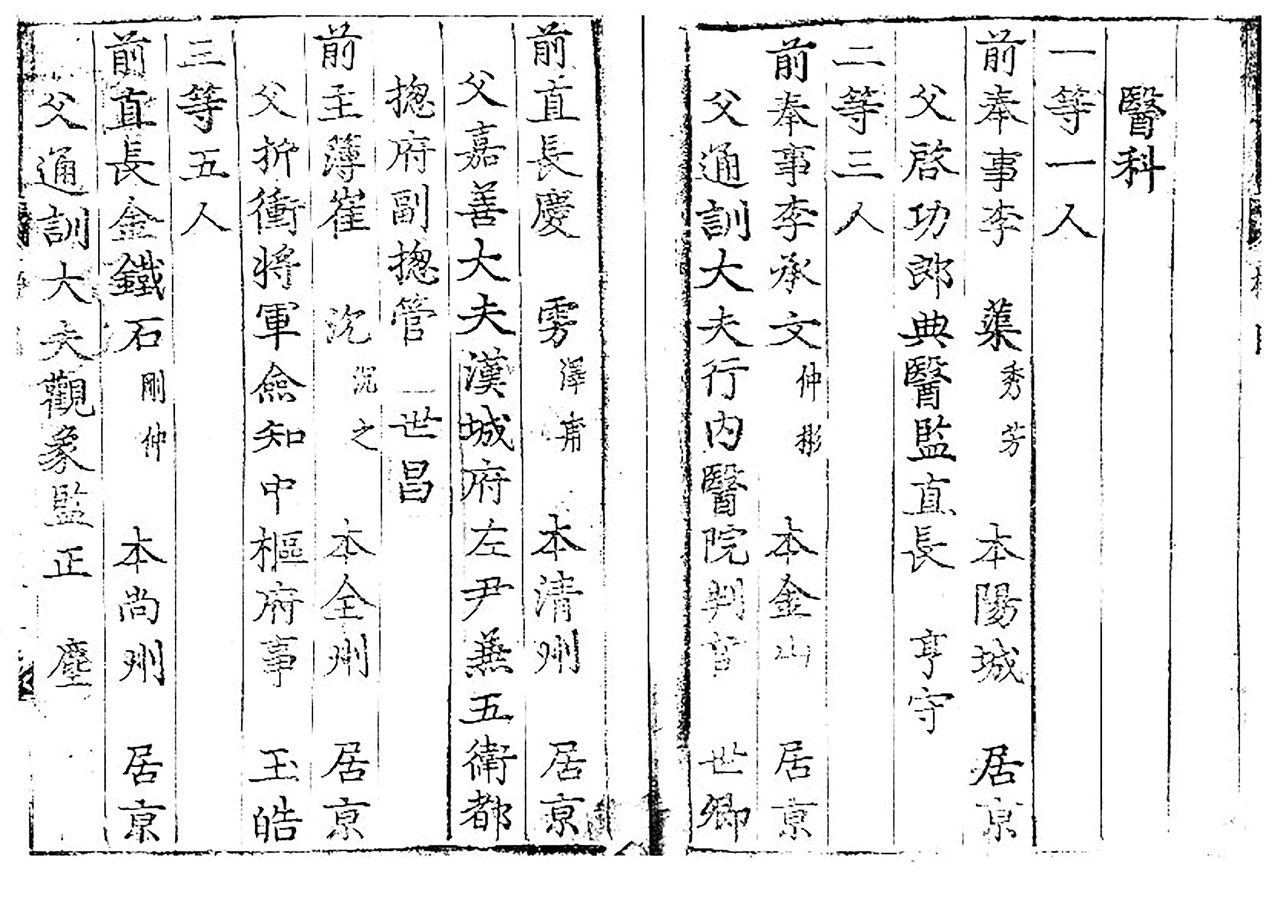 醫科
一等一人
前奉事李 蕖 秀芳 本陽城 居京
父啓功郎典醫監直長 亨守
二等三人
前奉事李承文 仲彬 本金山 居京
父通訓大夫行內醫院判官 世卿
前直長慶 雱 澤甫 本淸州 居京
父嘉善大夫漢城府左尹兼五衛都
摠府副摠管 世昌
前主簿崔 沉之 本全州 居京
父折衝將軍僉知中樞府事 玉皓
三等五人
前直長金鐵石 剛仲 本尙州 居京
父通訓大夫觀象監正 塵